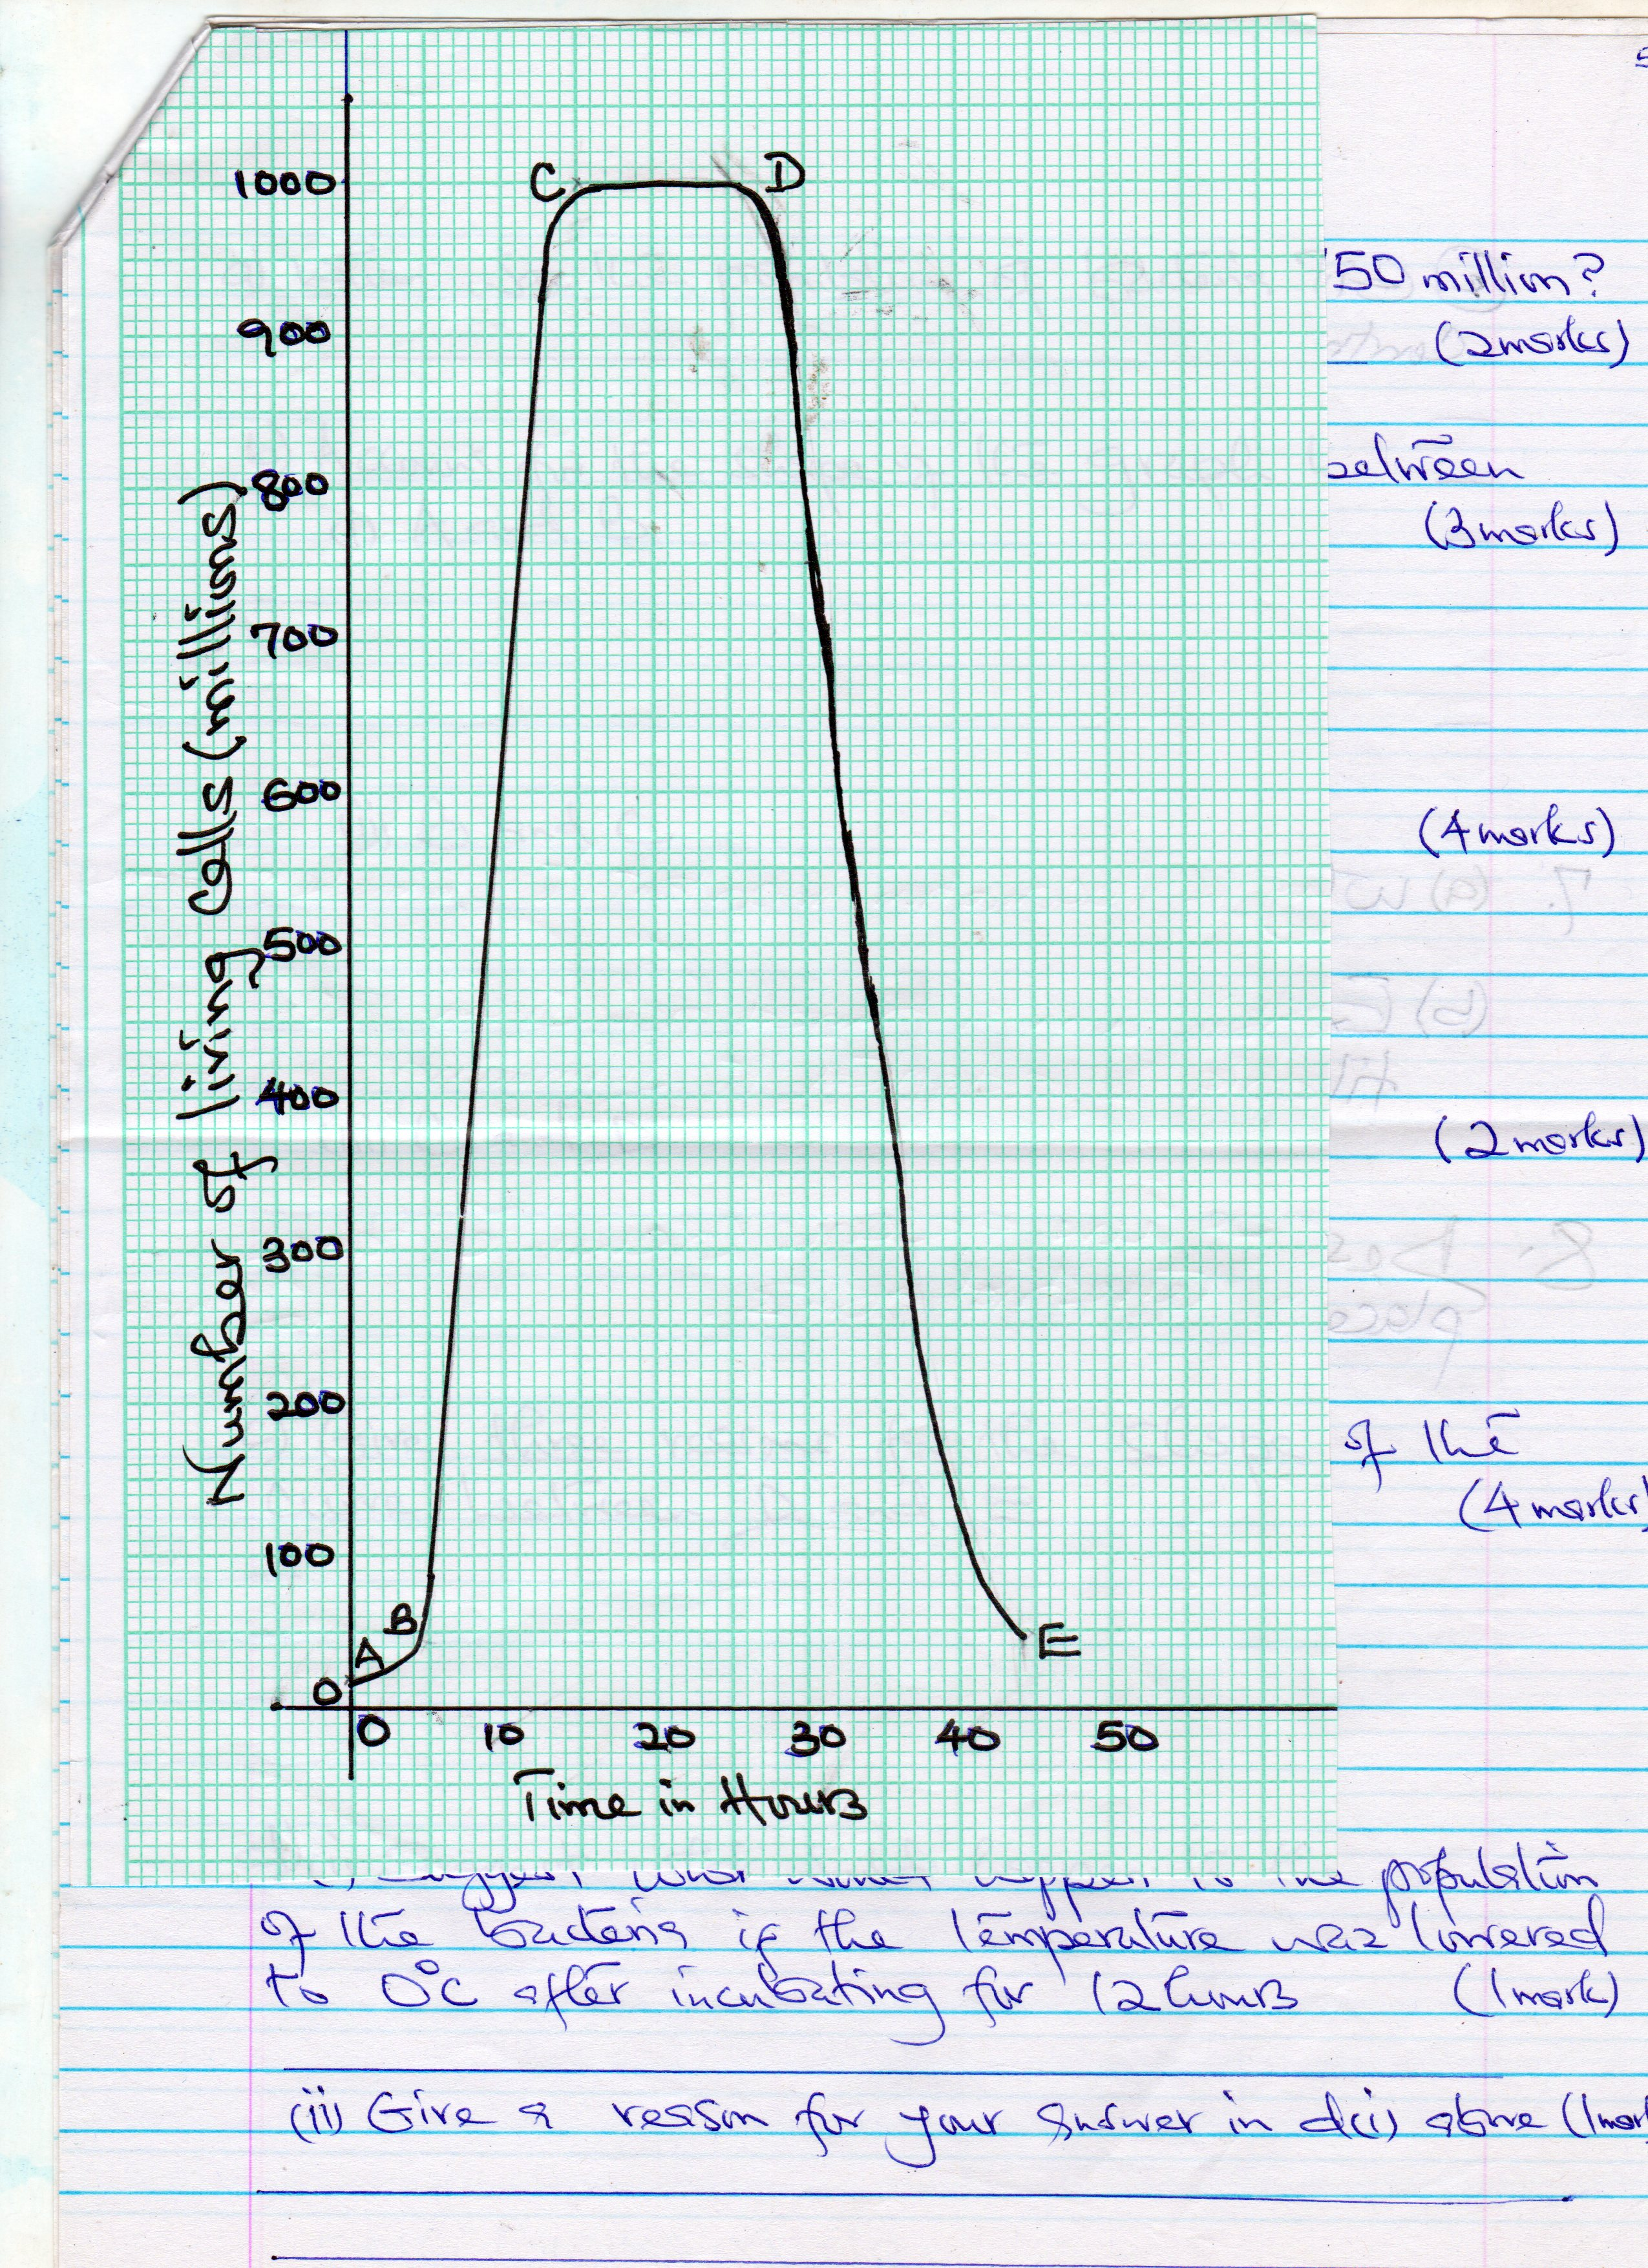 1000
C
D
900
800
700
600
500
400
300
200
100
B
A
E
0
0 10 20 30 40 50
Time in Hours
Number of living cells (millions)
50 million?
(2marks)
between
(3marks)
(4marks)
(2marks)
of the
(4marks)
population
of the bacteria if the temperature was lowered
to 0°C after incubating for 12 hours (1mark)
(ii) Give a reason for your answer in d(i) above (1mar